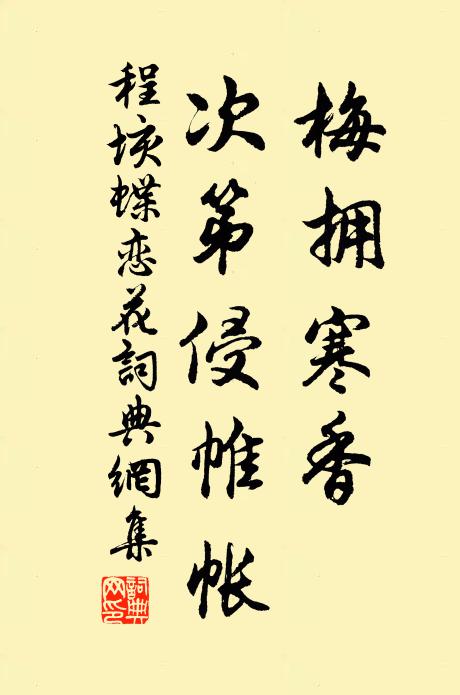 梅拥寒香
次第侵帷帐
程垓蝶恋花詞典網集
詞典网印